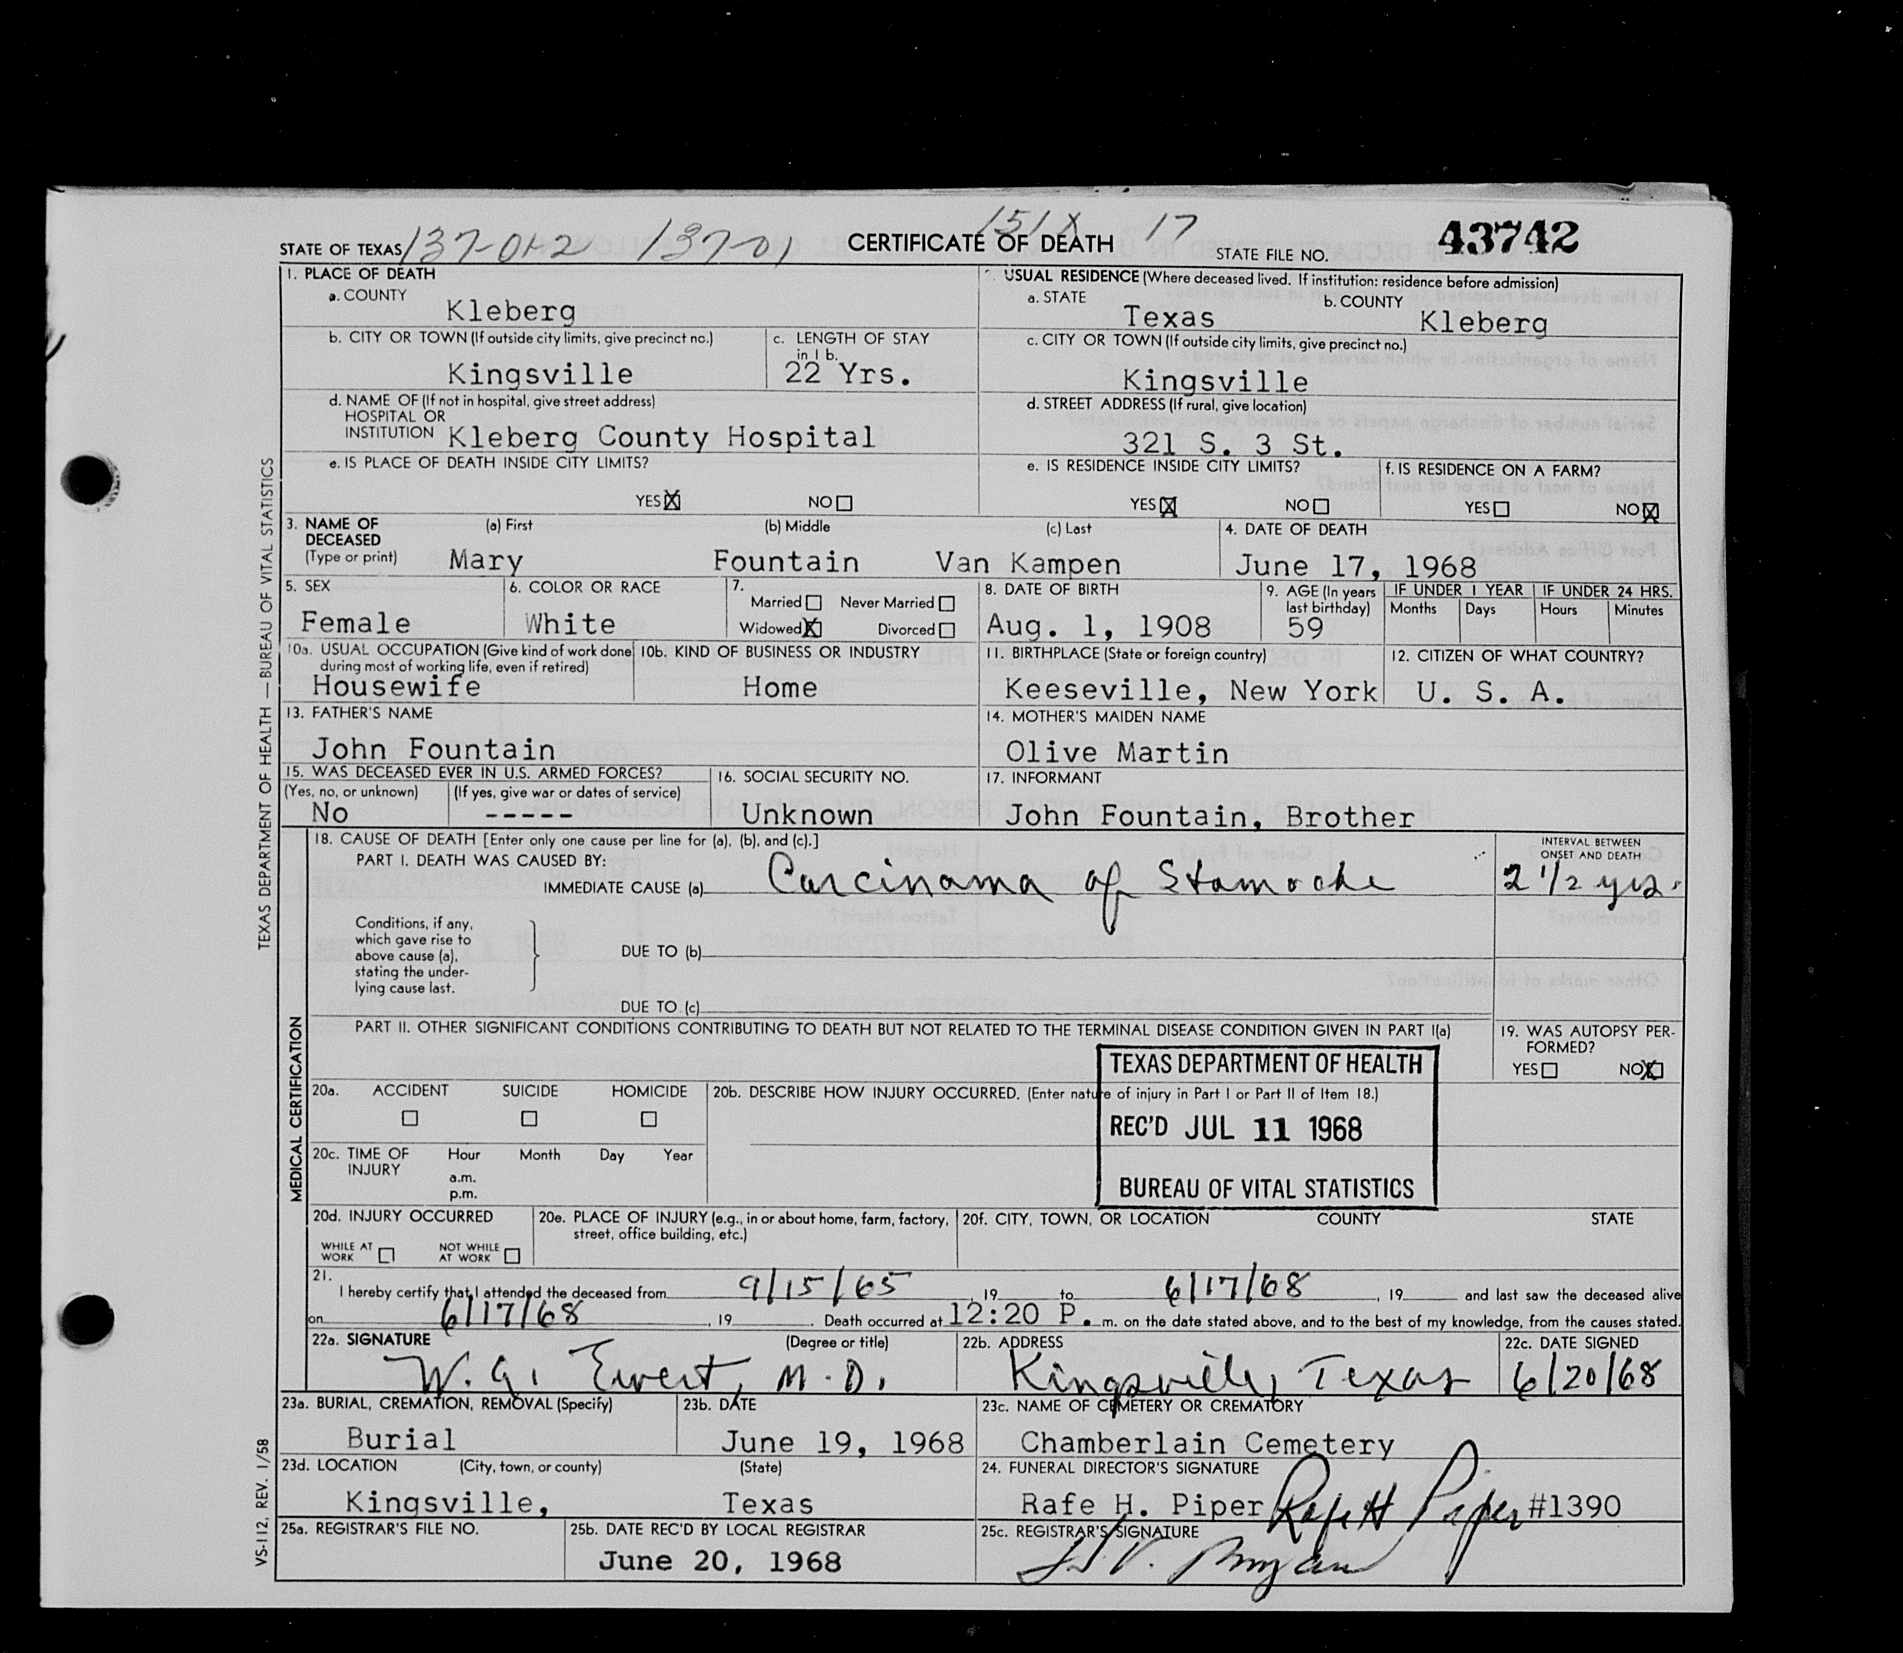 137-01-2 137-01 151X 17
STATE OF TEXAS CERTIFICATE OF DEATH STATE FILE NO. 43742
1. PLACE OF DEATH
a. COUNTY
Kleberg
2. USUAL RESIDENCE (Where deceased lived. If institution: residence before admission)
a. STATE b. COUNTY
Texas Kleberg
b. CITY OR TOWN (If outside city limits, give precinct no.)
Kingsville
c. LENGTH OF STAY
in 1 b.
22 Yrs.
c. CITY OR TOWN (If outside city limits, give precinct no.)
Kingsville
d. NAME OF (If not in hospital, give street address)
HOSPITAL OR
INSTITUTION Kleberg County Hospital
d. STREET ADDRESS (If rural, give location)
321 S. 3 St.
e. IS PLACE OF DEATH INSIDE CITY LIMITS?
YES X NO
e. IS RESIDENCE INSIDE CITY LIMITS?
YES X NO
f. IS RESIDENCE ON A FARM?
YES NO X
3. NAME OF (a) First (b) Middle (c) Last
DECEASED
(Type or print) Mary Fountain Van Kampen
4. DATE OF DEATH
June 17, 1968
5. SEX
Female
6. COLOR OR RACE
White
7.
Married Never Married
Widowed X Divorced
8. DATE OF BIRTH
Aug. 1, 1908
9. AGE (In years
last birthday)
59
IF UNDER 1 YEAR IF UNDER 24 HRS.
Months Days Hours Minutes
10a. USUAL OCCUPATION (Give kind of work done
during most of working life, even if retired)
Housewife
10b. KIND OF BUSINESS OR INDUSTRY
Home
11. BIRTHPLACE (State or foreign country)
Keeseville, New York
12. CITIZEN OF WHAT COUNTRY?
U. S. A.
13. FATHER'S NAME
John Fountain
14. MOTHER'S MAIDEN NAME
Olive Martin
15. WAS DECEASED EVER IN U.S. ARMED FORCES?
(Yes, no, or unknown) (If yes, give war or dates of service)
No -----
16. SOCIAL SECURITY NO.
Unknown
17. INFORMANT
John Fountain, Brother
18. CAUSE OF DEATH [Enter only one cause per line for (a), (b), and (c).]
PART I. DEATH WAS CAUSED BY:
IMMEDIATE CAUSE (a) Carcinama of Stamoche
INTERVAL BETWEEN
ONSET AND DEATH
2 1/2 yrs.
Conditions, if any,
which gave rise to
above cause (a),
stating the under-
lying cause last.
DUE TO (b)
DUE TO (c)
PART II. OTHER SIGNIFICANT CONDITIONS CONTRIBUTING TO DEATH BUT NOT RELATED TO THE TERMINAL DISEASE CONDITION GIVEN IN PART I(a)
19. WAS AUTOPSY PER-
FORMED?
YES NO X
TEXAS DEPARTMENT OF HEALTH
REC'D JUL 11 1968
BUREAU OF VITAL STATISTICS
20a. ACCIDENT SUICIDE HOMICIDE
20b. DESCRIBE HOW INJURY OCCURRED. (Enter nature of injury in Part I or Part II of Item 18.)
20c. TIME OF Hour Month Day Year
INJURY
a.m.
p.m.
20d. INJURY OCCURRED
WHILE AT
WORK
NOT WHILE
AT WORK
20e. PLACE OF INJURY (e.g., in or about home, farm, factory,
street, office building, etc.)
20f. CITY, TOWN, OR LOCATION COUNTY STATE
21.
I hereby certify that I attended the deceased from 9/15/65, 19 to 6/17/68, 19 and last saw the deceased alive
on 6/17/68, 19. Death occurred at 12:20 P.m. on the date stated above, and to the best of my knowledge, from the causes stated.
22a. SIGNATURE (Degree or title)
W. G. Ewert, M.D.
22b. ADDRESS
Kingsville, Texas
22c. DATE SIGNED
6/20/68
23a. BURIAL, CREMATION, REMOVAL (Specify)
Burial
23b. DATE
June 19, 1968
23c. NAME OF CEMETERY OR CREMATORY
Chamberlain Cemetery
23d. LOCATION (City, town, or county) (State)
Kingsville, Texas
24. FUNERAL DIRECTOR'S SIGNATURE
Rafe H. Piper Rafe H Piper #1390
25a. REGISTRAR'S FILE NO.
25b. DATE REC'D BY LOCAL REGISTRAR
June 20, 1968
25c. REGISTRAR'S SIGNATURE
TEXAS DEPARTMENT OF HEALTH — BUREAU OF VITAL STATISTICS
MEDICAL CERTIFICATION
VS-112, REV. 1/58